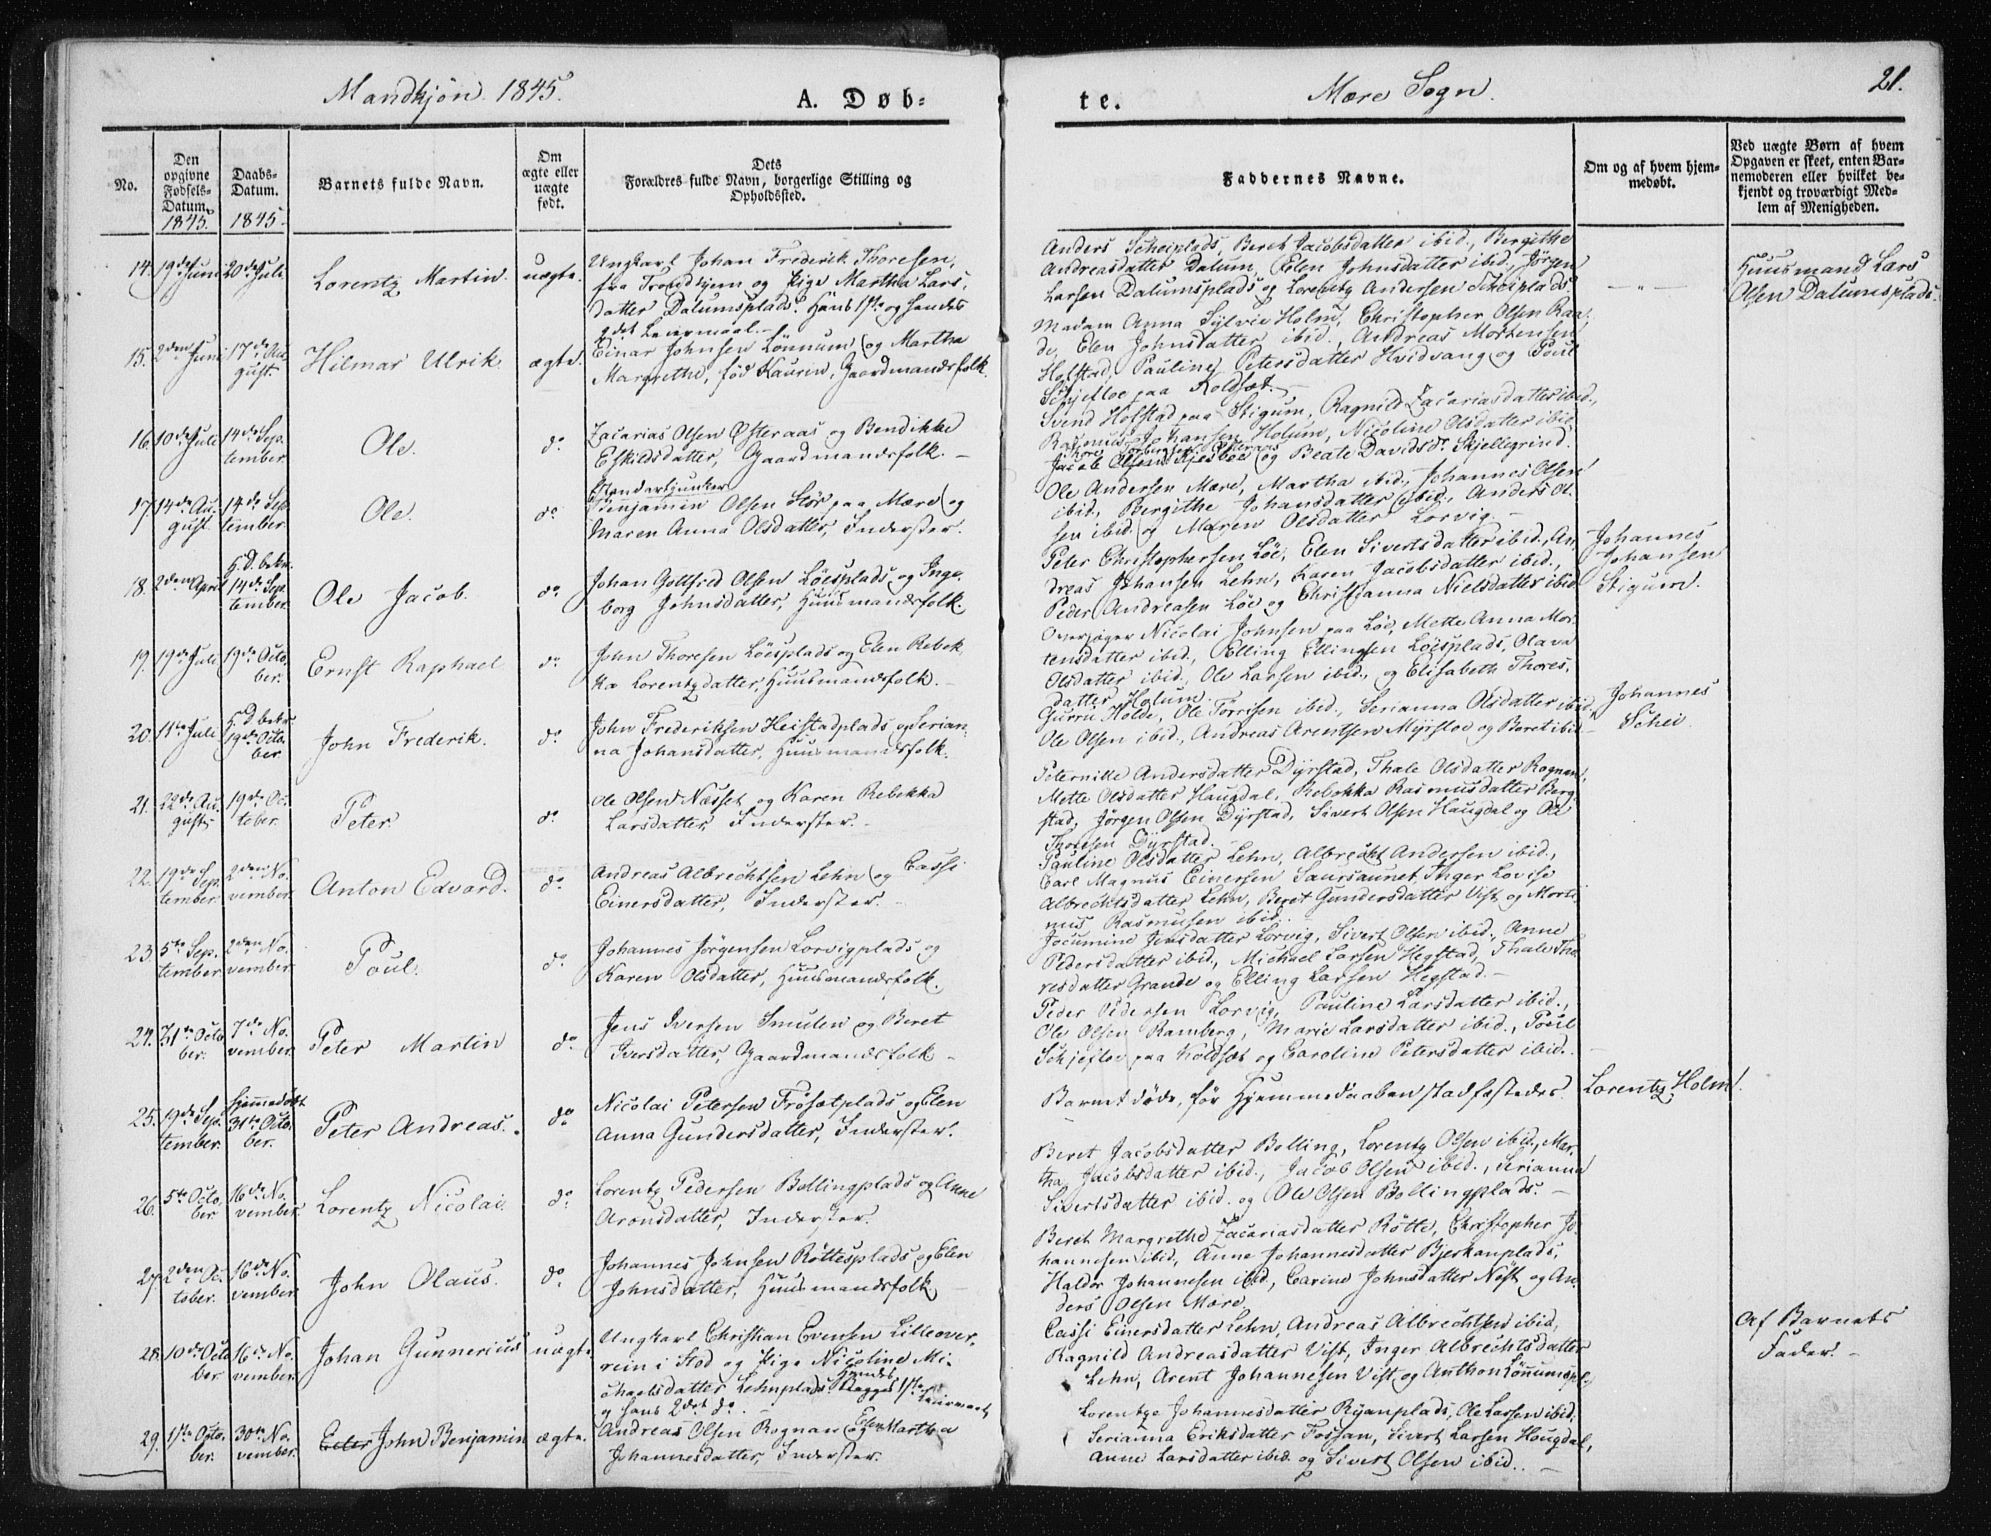 Mandkjøn 1845.
A. Døb-
te.
Mære Sogn.
21.
No.
Den opgivne Fødsels-Datum. 1845.
Daabs-Datum. 1845.
Barnets fulde Navn.
Om ægte eller uægte født.
Dets Forældres fulde Navn, borgerlige Stilling og Opholdssted.
Faddernes Navne.
Om og af hvem hjemmedøbt.
Ved uægte Børn af hvem Opgaven er skeet, enten Barnemoderen eller hvilket bekjendt og troværdigt Medlem af Menigheden.
14. 19de Juni 20de Juli Lorentz Martin. uægte.
Ungkarl Johan Frederik Thoresen,
fra Trondhjem og Pige Martha Lars-
datter Dalumsplads. Hans 1ste og hendes
2det Leiermaal.
Anders Scheiplads, Beret Jacobsdatter ibid., Bergithe
Andreasdatter Dalum, Elen Johnsdatter ibid., Jørgen
Larsen Dalumsplads og Lorentz Andersen Scheiplads.
Huusmand Lars
Olsen Dalumsplads.
15. 2den Juni 17de Au-
gust. Hilmar Ulrik. ægte.
Einar Johnsen Lønnum og Martha
Margrethe, fød Kaurin, Gaardmandsfolk.
Madam Anna Sylvie Holm, Christopher Olsen Raa-
de, Elen Johnsdatter ibid., Andreas Mortensen
Holstad, Pauline Petersdatter Hvidvang og Poul
Schjefloe paa Koldsæt.
16. 10de Juli 14de Sep-
tember. Ole. do.
Zacarias Olsen Østeraas og Bendikke
Eskildsdatter, Gaardmandsfolk.
Svend Hofstad paa Stigum, Ragnild Zacariasdatter ibid.,
Rasmus Johansen Holum, Nicoline Olsdatter ibid.,
Jacob Olsen og Beate Davidsdr. Skjellegrind.
17. 14de Au-
gust 14de Sep-
tember. Ole. do.
Standartjunker
Benjamin Olsen Stør paa Mære og
Maren Anna Olsdatter, Inderster.
Ole Andersen Mære, Martha ibid., Johannes Olsen
ibid., Bergithe Johansdatter ibid., Anders Ol-
sen ibid. og Maren Olsdatter Lorvig.
18. 2den April H. D. bekr.
14de Sep-
tember. Ole Jacob. do.
Johan Gottfred Olsen Løesplads og Inge-
borg Johnsdatter, Huusmandsfolk.
Peter Christophersen Løe, Elen Sivertsdatter ibid., An-
dreas Johansen Lehn, Karen Jacobsdatter ibid.,
Peder Andreasen Løe og Christianna Nielsdatter ibid.
Johannes
Johansen
Stigum.
19. 19de Juli 19de Octo-
ber. Ernst Raphael do.
John Thoresen Løesplads og Elen Rebek-
ka Lorentzdatter, Huusmandsfolk.
Overjæger Nicolai Johnsen paa Løe, Mette Anna Mor-
tensdatter ibid., Elling Ellingsen Løesplads, Olava
Olsdatter ibid., Ole Larsen ibid., og Elisabeth Thores-
datter Holum.
20. 11te Juli H. D. bekr.
19de Octo-
ber. John Frederik. do.
John Frederiksen Heistadplads og Serian-
na Johansdatter, Huusmandsfolk.
Gurru Holde, Ole Torrisen ibid., Serianna Olsdatter ibid.,
Ole Olsen ibid., Andreas Arentsen Myrsloe og Beret ibid.
Johannes
Schei.
21. 22de Au-
gust. 19de Oc-
tober. Peter. do.
Ole Olsen Næsset og Karen Rebekka
Larsdatter, Inderster.
Peternille Andersdatter Dyrstad, Thale Olsdatter Rognan,
Mette Olsdatter Haugdal, Rebekka Rasmusdatter Berg-
stad, Jørgen Olsen Dyrstad, Sivert Olsen Haugdal og Ole
Thoresen Dyrstad.
22. 19de Sep-
tember. 2den No-
vember. Anton Edvard. do.
Andreas Albrechtsen Lehn og Cassi
Einersdatter, Inderster.
Pauline Olsdatter Lehn, Albrecht Andersen ibid.,
Carl Magnus Einersen Saursaunet, Inger Lovise
Albrechtsdatter Lehn, Beret Gundersdatter Vist og Morti-
nus Rasmusen ibid.
23. 5te Sep-
tember. 2den No-
vember. Poul. do.
Johannes Jørgensen Lorvigplads og
Karen Olsdatter, Huusmandsfolk.
Jocumine Jensdatter Lorvig, Sivert Olsen ibid., Anne
Pedersdatter ibid., Michael Larsen Hegstad, Thale Tho-
resdatter Grande og Elling Larsen Hegstad.
24. 31te Octo-
ber. 7de No-
vember. Peter Martin do.
Jens Iversen Smulen og Beret
Iversdatter, Gaardmandsfolk.
Peder Pedersen Lorvig, Pauline Larsdatter ibid.,
Ole Olsen Ramberg, Marie Larsdatter ibid., Poul
Schjefloe paa Koldsæt og Caroline Petersdatter ibid.
25. 19de Sep-
tember. Hjemmedøbt
31te Octo-
ber. Peter Andreas. do.
Nicolai Petersen Frøsetplads og Elen
Anna Gundersdatter, Inderster.
Barnet døde, før Hjemmedaaben stadfæstedes.
Lorentz Holm.
26. 5te Octo-
ber. 16de No-
vember. Lorentz Nicolai. do.
Lorentz Pedersen Bollingplads og Anne
Aronsdatter, Inderster.
Beret Jacobsdatter Bolling, Lorentz Olsen ibid., Mar-
tha Jacobsdatter ibid., Jacob Olsen ibid., Serianna
Sivertsdatter ibid. og Ole Olsen Bollingplads.
27. 2den Oc-
tober. 16de No-
vember. John Olaus. do.
Johannes Johnsen Røttesplads og Elen
Johnsdatter, Huusmandsfolk
Beret Margrethe Zacariasdatter Røtte, Christopher Jo-
hannesen ibid., Anne Johannesdatter Bjerkanplads,
Haldor Johannesen ibid., Carine Johnsdatter Nøst og An-
ders Olsen Mære.
28. 10de Octo-
ber 16de No-
vember. Johan Gunnerius uægte.
Ungkarl Christian Evensen Lilleover-
rein i Stod og Pige Nicoline Mi-
chaelsdatter Lehnplads. Hendes 1ste Leiermaal
og hans 2det do.
Cassi Einersdatter Lehn, Andreas Albrechtsen ibid.,
Ragnild Andreasdatter Vist, Inger Albrechtsdatter
Lehn, Arent Johannesen Vist og Anthon Lønnumspl.
Af Barnets
Fader.
29. 1ste Octo-
ber. 30te No-
vember. John Benjamin ægte.
Andreas Olsen Rognan og Elen Martha
Johannesdatter, Inderster.
Lorentze Johannesdatter Ryanplads, Ole Larsen ibid.,
Serianna Eriksdatter Fossan, Sivert Larsen Hougdal,
Anne Larsdatter ibid. og Sivert Olsen ibid.